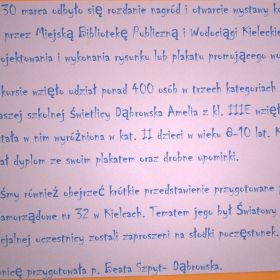 30 marca odbyło się rozdanie nagród i otwarcie wystawy
przez Miejską Bibliotekę Publiczną i Wodociągi Kieleckie
ojektowania i wykonania rysunku lub plakatu promującego
kursie wzięło udział ponad 400 osób w trzech kategoriach
aszej szkolnej świetlicy Dąbrowska Amelia z kl. IIIE wzięł
tała w nim wyróżniona w kat. II dzieci w wieku 8-10 lat.
ał dyplom ze swoim plakatem oraz drobne upominki.
śmy również obejrzeć krótkie przedstawienie przygotowane
amorządowe nr 32 w Kielcach. Tematem jego był Światowy
cjalnej uczestnicy zostali zaproszeni na słodki poczęstunek.
nię przygotowała p. Beata Szpyt- Dąbrowska.